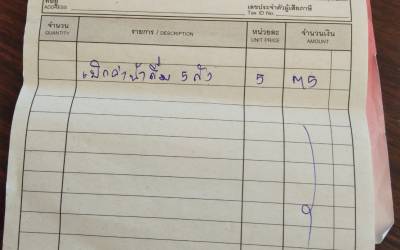 ที่อยู่
ADDRESS
เลขประจำตัวผู้เสียภาษี
Tax ID No.
จำนวน รายการ / DESCRIPTION หน่วยละ จำนวนเงิน
QUANTITY UNIT PRICE AMOUNT
เบิกค่าน้ำดื่ม 5 ถัง 5